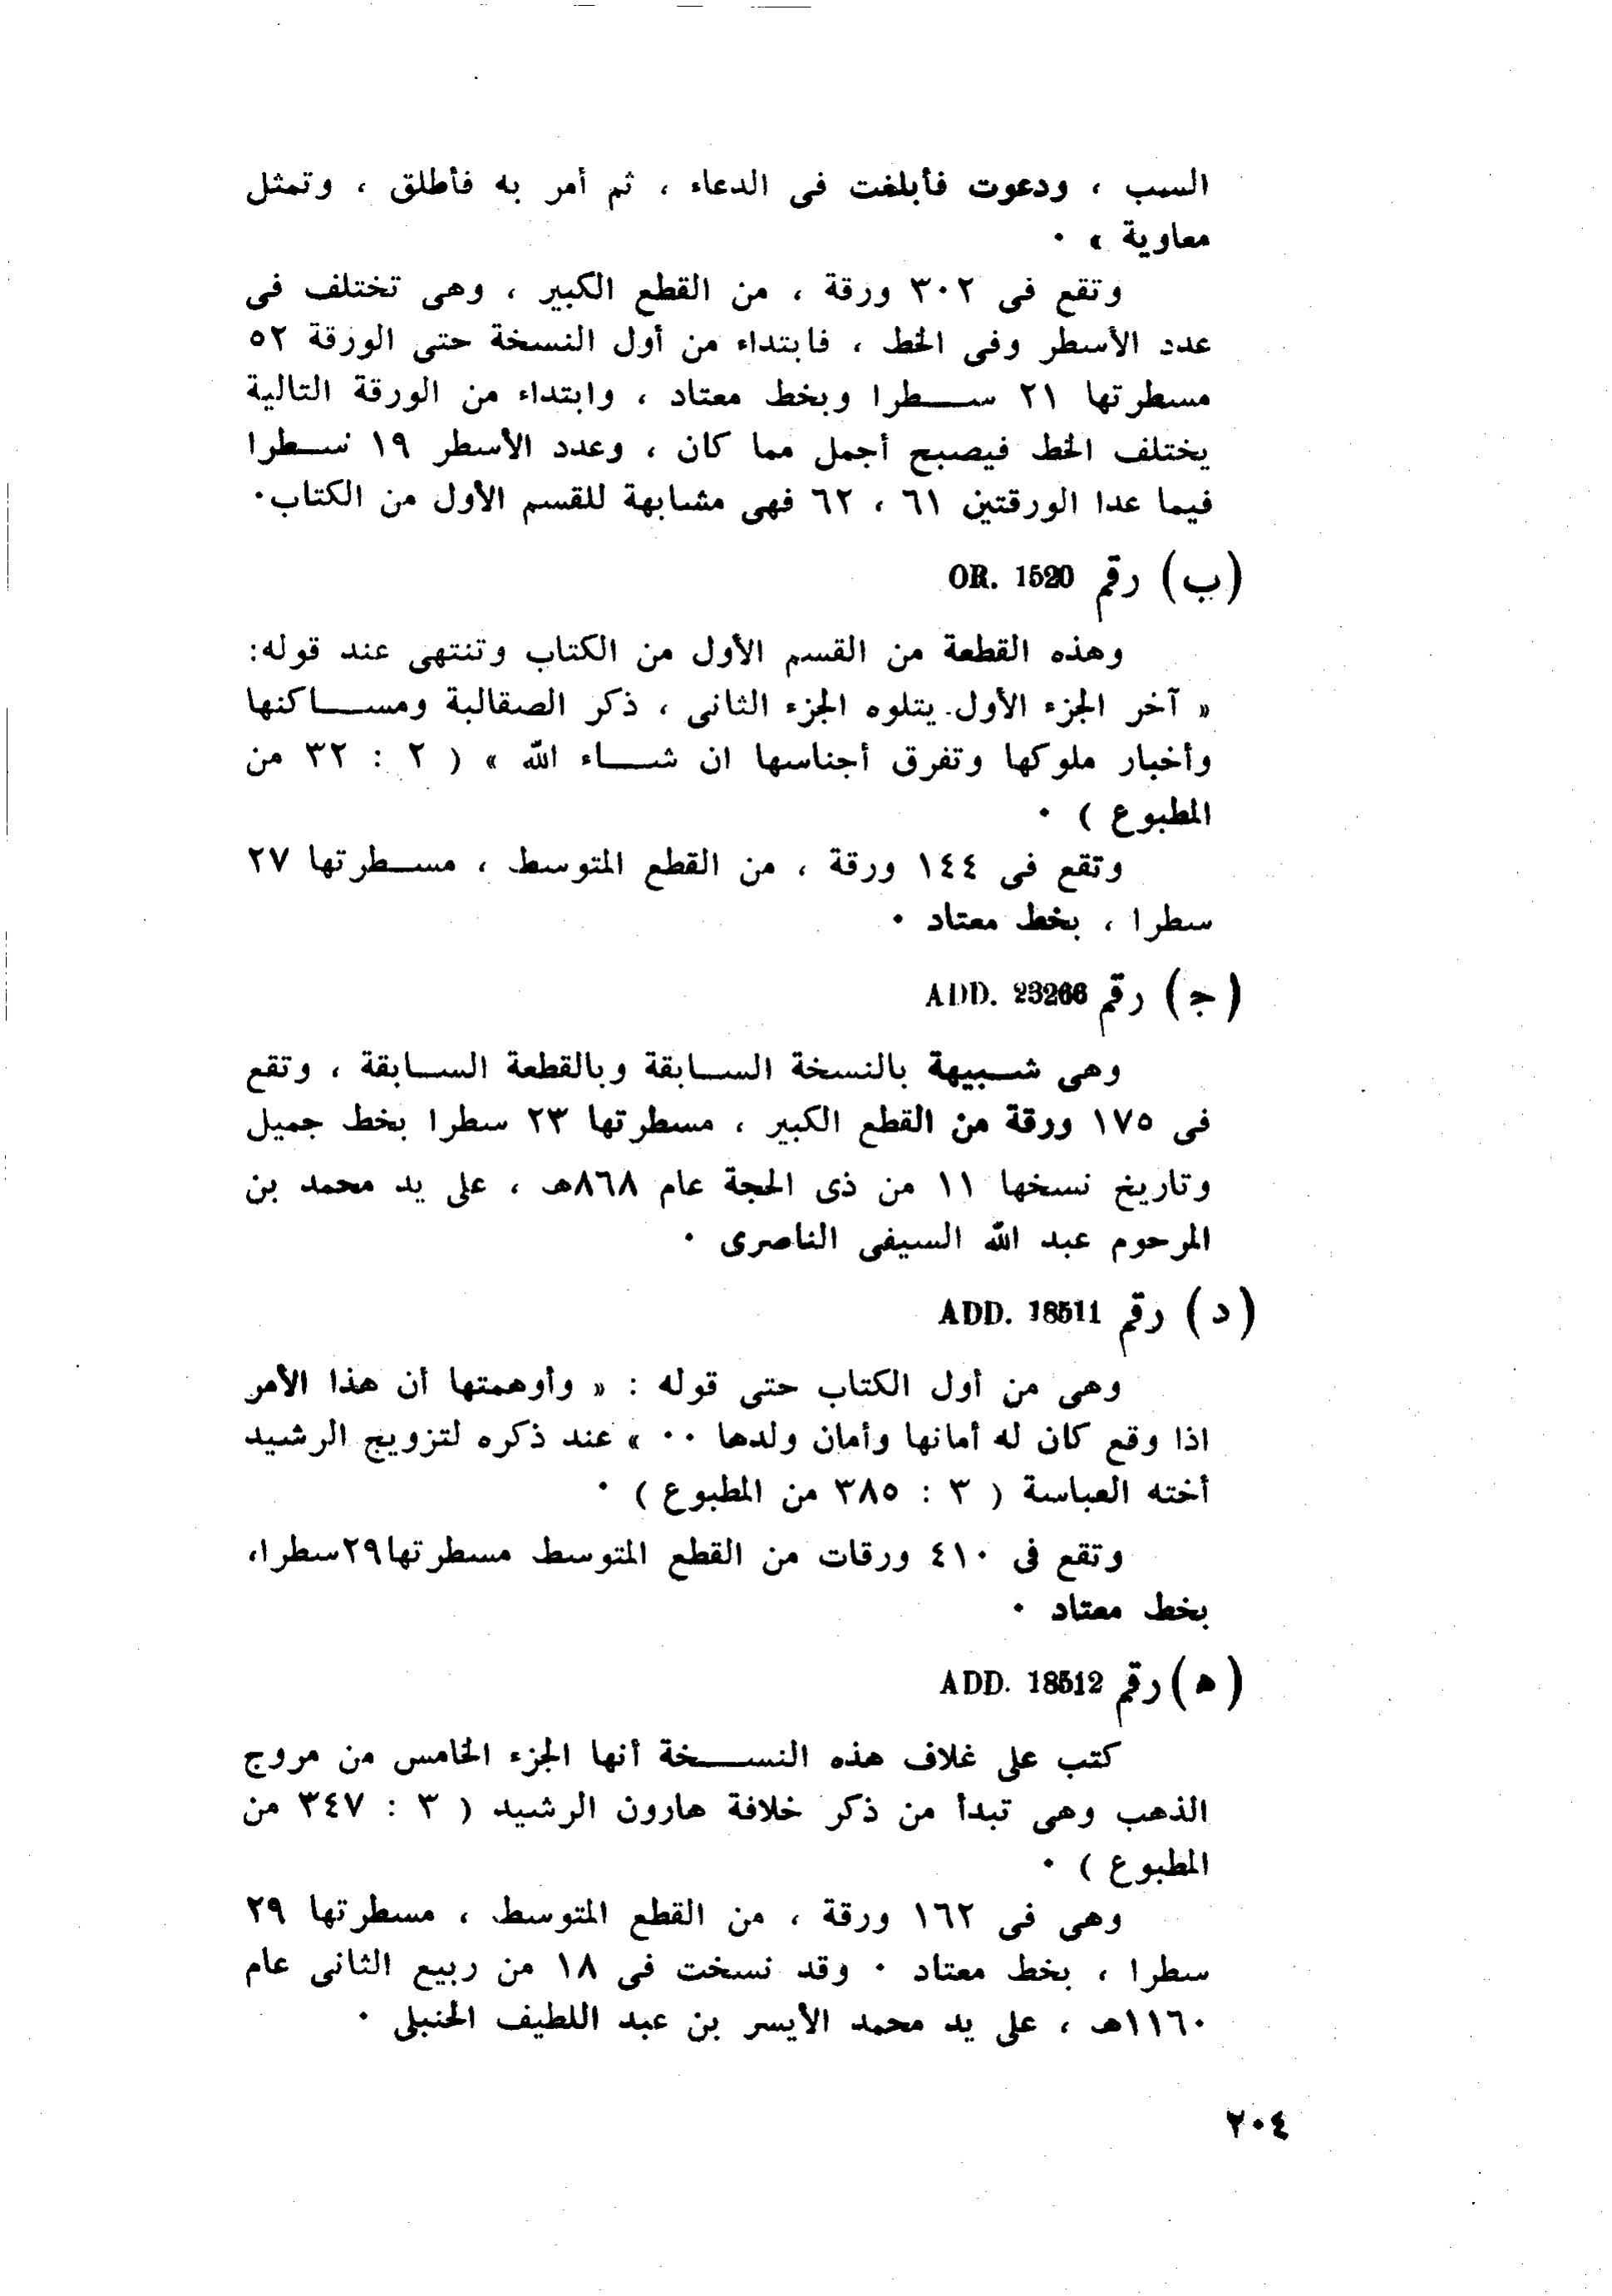 السبب ، ودعوت فأبلغت فى الدعاء ، ثم أمر به فأطلق ، وتمثل
معاوية » ٠
وتقع فى ٣٠٢ ورقة ، من القطع الكبير ، وهى تختلف فى
عدد الأسطر وفى الخط ، فابتداء من أول النسخة حتى الورقة ٥٢
مسطرتها ٢١ سطرا وبخط معتاد ، وابتداء من الورقة التالية
يختلف الخط فيصبح أجمل مما كان ، وعدد الأسطر ١٩ سطرا
فيما عدا الورقتين ٦١ ، ٦٢ فهى مشابهة للقسم الأول من الكتاب٠
(ب) رقم OR. 1520
وهذه القطعة من القسم الأول من الكتاب وتنتهى عند قوله:
« آخر الجزء الأول. يتلوه الجزء الثانى ، ذكر الصقالبة ومساكنها
وأخبار ملوكها وتفرق أجناسها ان شاء الله » ( ٢ : ٣٢ من
المطبوع ) ٠
وتقع فى ١٤٤ ورقة ، من القطع المتوسط ، مسطرتها ٢٧
سطرا ، بخط معتاد ٠
(ج) رقم ADD. 23266
وهى شبيهة بالنسخة السابقة وبالقطعة السابقة ، وتقع
فى ١٧٥ ورقة من القطع الكبير ، مسطرتها ٢٣ سطرا بخط جميل
وتاريخ نسخها ١١ من ذى الحجة عام ٨٦٨هـ ، على يد محمد بن
المرحوم عبد الله السيفى الناصرى ٠
(د) رقم ADD. 18511
وهى من أول الكتاب حتى قوله : « وأوهمتها أن هذا الأمر
اذا وقع كان له أمانها وأمان ولدها ٠٠ » عند ذكره لتزويج الرشيد
أخته العباسة ( ٣ : ٣٨٥ من المطبوع ) ٠
وتقع فى ٤١٠ ورقات من القطع المتوسط مسطرتها٢٩سطرا،
بخط معتاد ٠
(هـ) رقم ADD. 18512
كتب على غلاف هذه النسخة أنها الجزء الخامس من مروج
الذهب وهى تبدأ من ذكر خلافة هارون الرشيد ( ٣ : ٣٤٧ من
المطبوع ) ٠
وهى فى ١٦٢ ورقة ، من القطع المتوسط ، مسطرتها ٢٩
سطرا ، بخط معتاد ٠ وقد نسخت فى ١٨ من ربيع الثانى عام
١١٦٠هـ ، على يد محمد الأيسر بن عبد اللطيف الحنبلى ٠
٢٠٤